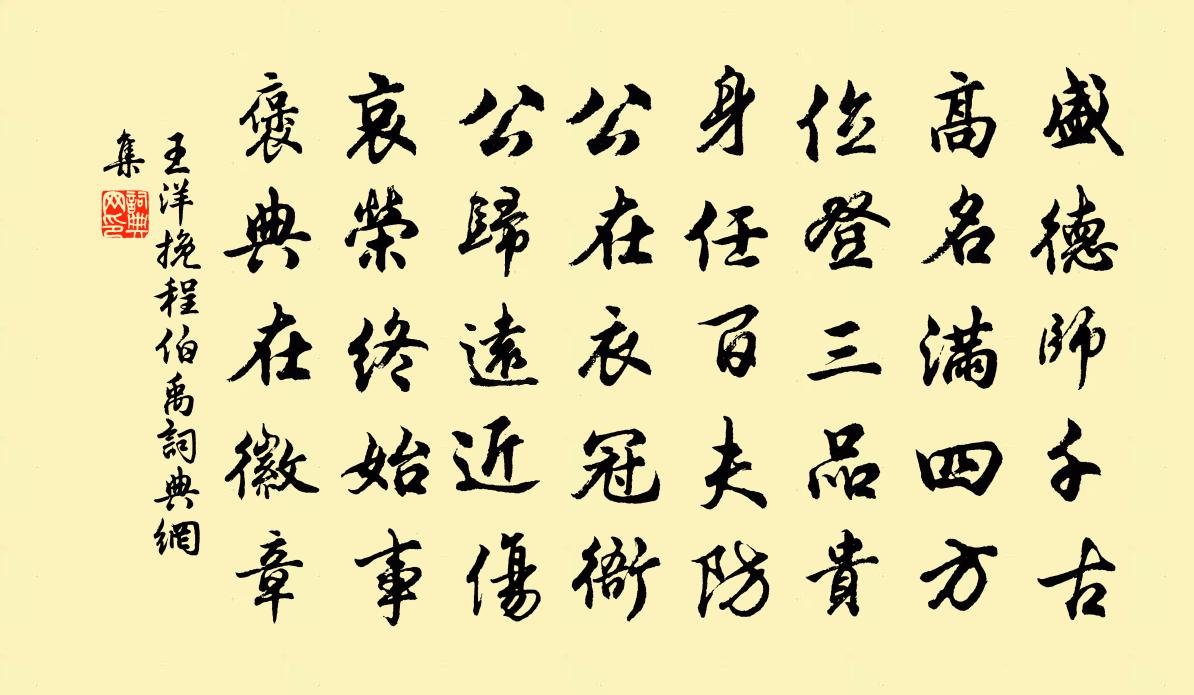 盛德師千古
高名滿四方
位登三品貴
身任百夫防
公在衣冠衛
公歸遠近傷
哀榮終始事
褒典在徽章
王洋挽程伯禹詞典網
集
詞典網印